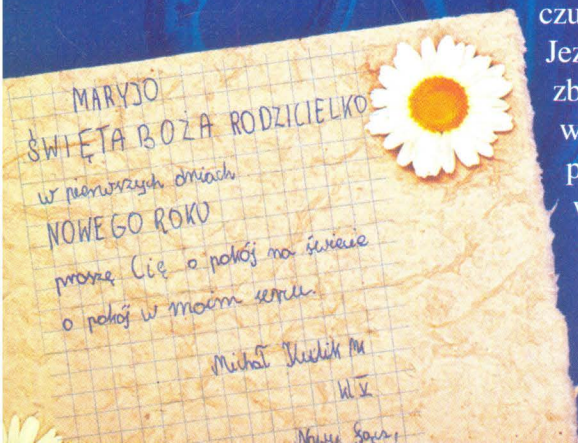 MARYJO
ŚWIĘTA BOŻA RODZICIELKO
w pierwszych dniach
NOWEGO ROKU
proszę Cię o pokój na świecie
o pokój w moim sercu.
Michał Kulik
kl V
Nowy Sącz,
czu
Jez
zb
w
p